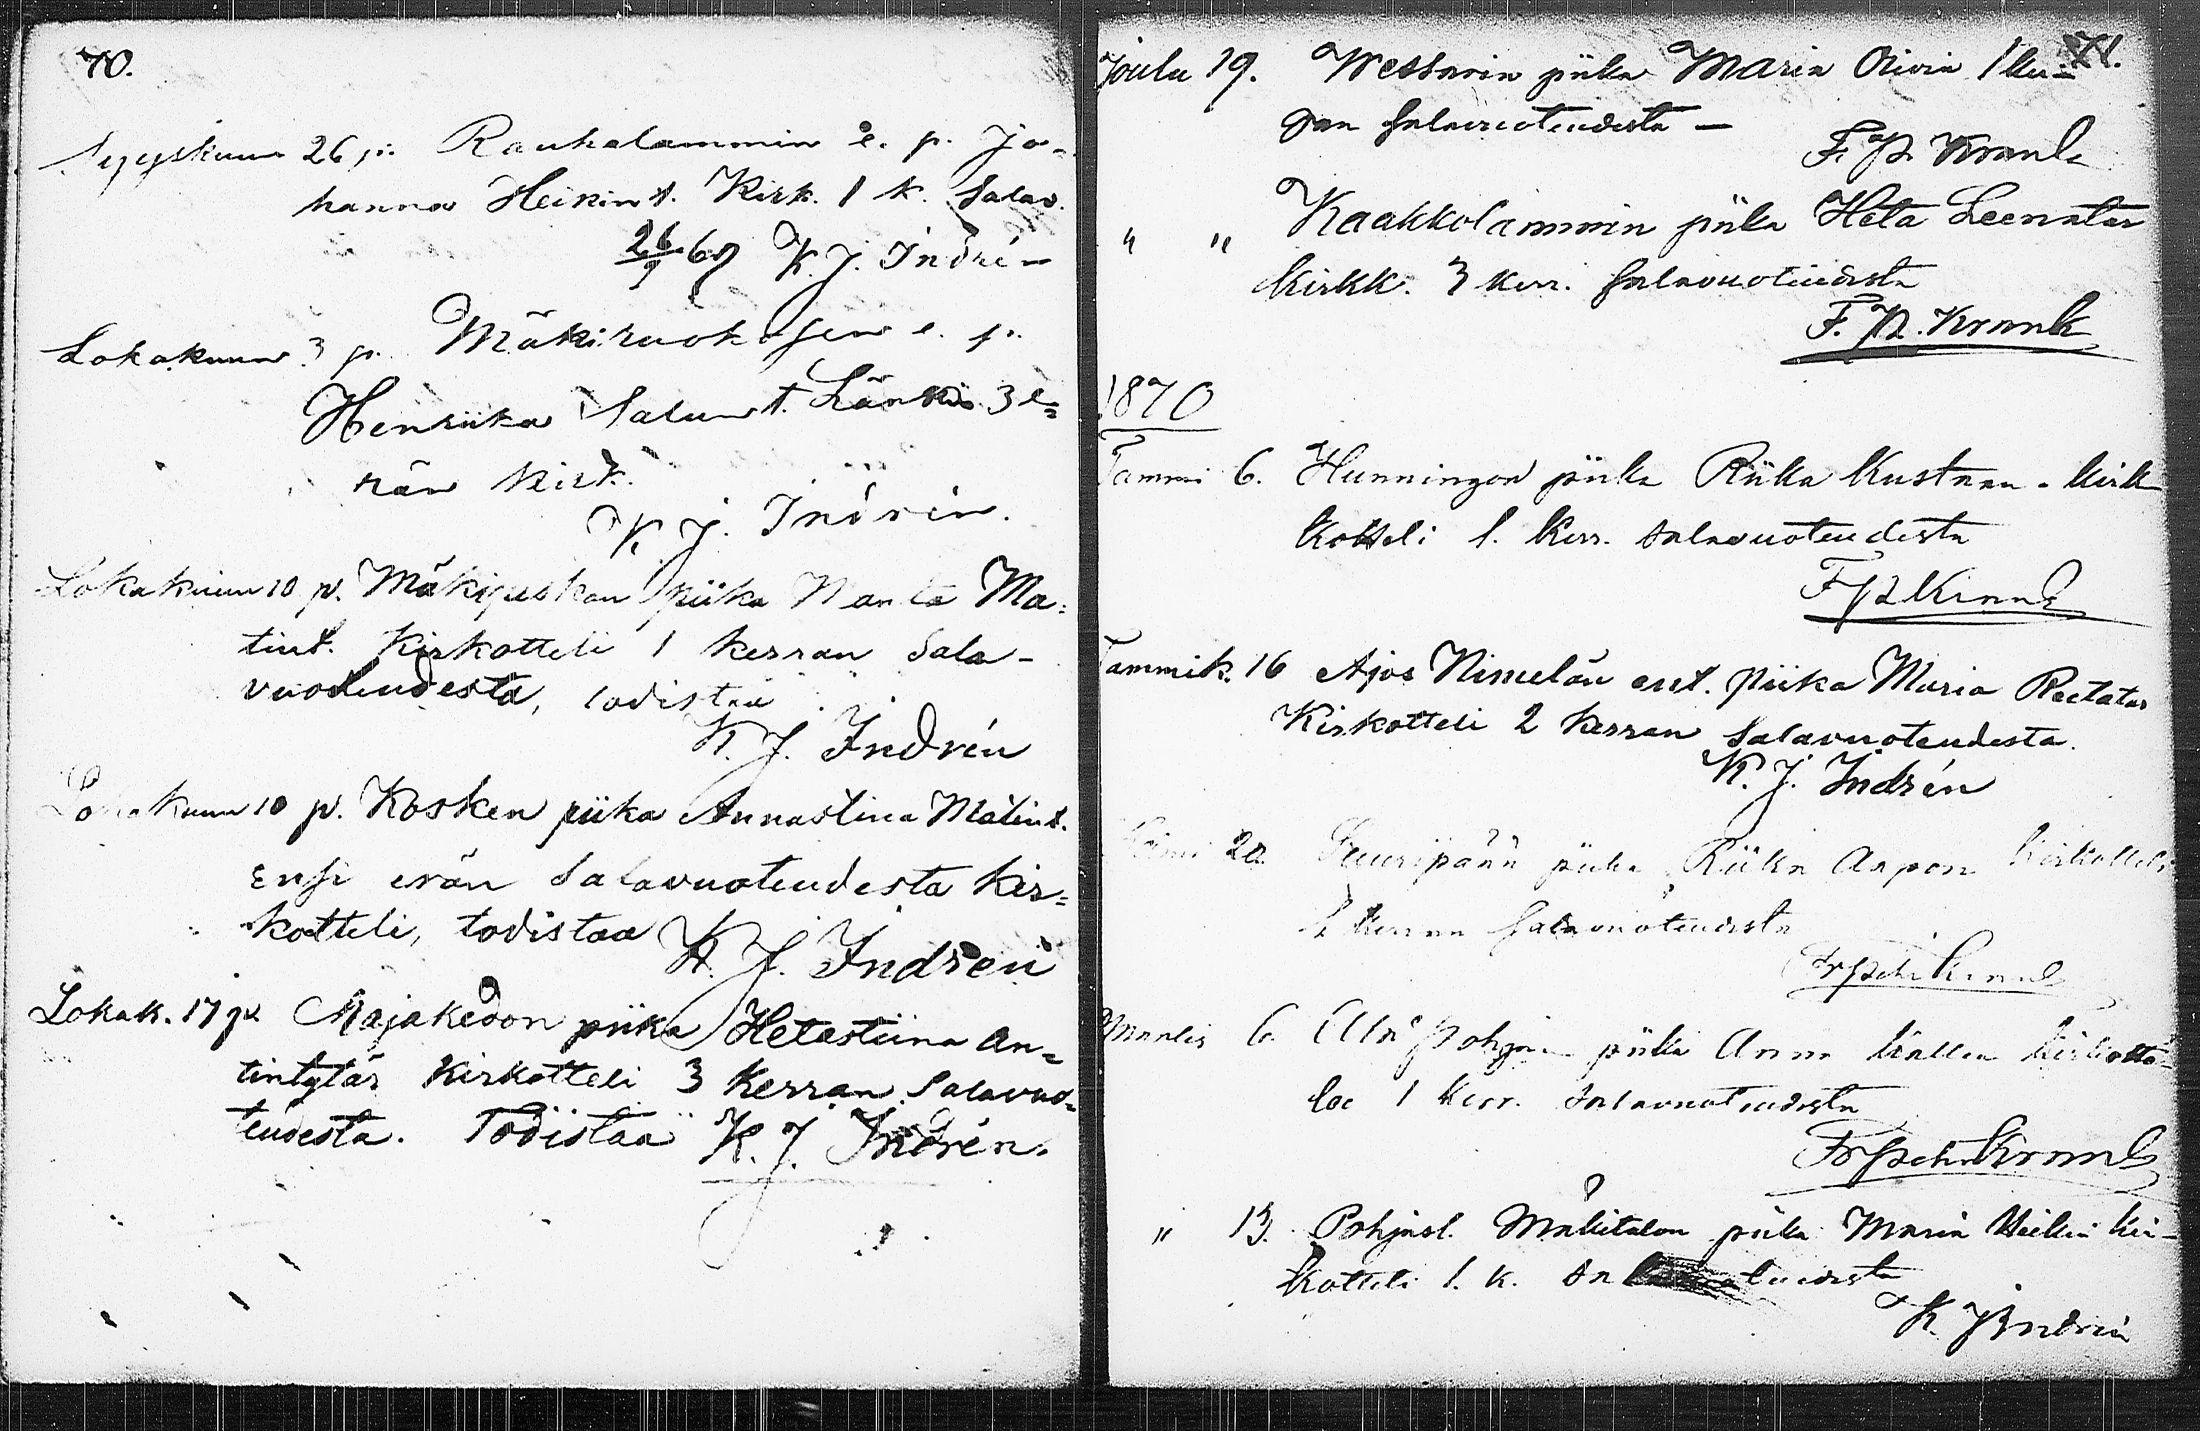 70.
Syyskuun 26 p. Rauhalammin e. p. Jo-
hanna Heikint. Kirk. 1 k. Salav.
26/9 69 K. J. Indrén
Lokakuun 3 p. Mäki e. p.
Henriika Salum t. 3 e=
rän kirk.
K. J. Indrén.
Lokakuun 10 p. piika Manta Ma=
tint. Kirkotteli 1 kerran Sala-
vuoteudesta, todistaa
K. J. Indrén
Lokakuun 10 p. Kosken piika Annastina Matint.
Ensi erän Salavuoteudesta kir=
kotteli, todistaa K. J. Indrén
Lokak. 17 p. Majakedon piika Hetastiina An=
tintytär Kirkotteli 3 Kerran Salavuo=
teudesta. Todistaa K. J. Indrén.
71.
Joulu 19. piika Maria 1 ker-
ran salavuoteudesta —
F. P. Krank
" " Kaakkolammin piika Heta Leenatar
kirkk. 3 kerr. salavuoteudesta
F. P. Krank
1870
Tammi 6. Hunningon piika Riika Kustaan. kirk
kotteli 1. kerr. salavuoteudesta
F P Krank
Tammik. 16 Ajos Nimelän ent. piika Maria Reetatar
Kirkotteli 2 kerran Salavuoteudesta.
K. J. Indrén
20. Suuripään piika Riika Aapon kirkotteli
kerran salavuoteudesta
Krank
Maalis 6. Ala piika Anna Kallen kirkotte-
loe 1 kerr. salavuoteudesta
Krank
" 13. Pohjasl. Mäkitalon piika Maria Heikin kir-
kotteli 1. k. salavuoteudesta
K. J Indrén